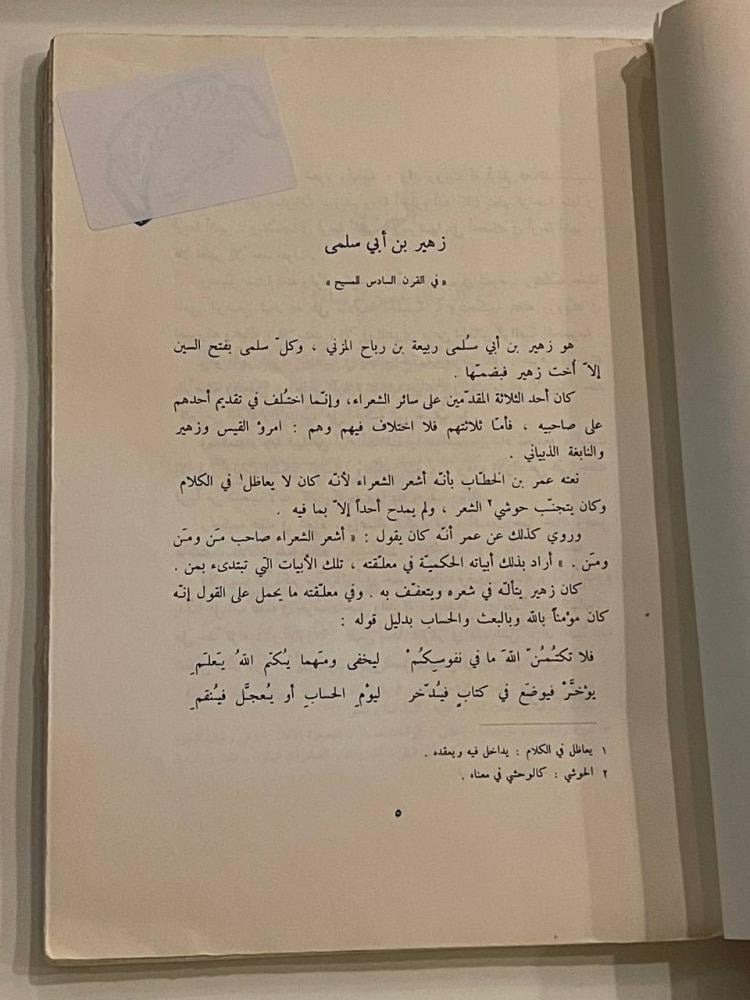 زهير بن أبي سلمى
« في القرن السادس للمسيح »
هو زهير بن أبي سُلمى ربيعة بن رباح المزني ، وكلّ سلمى بفتح السين
إلاّ أخت زهير فبضمّها .
كان أحد الثلاثة المقدّمين على سائر الشعراء، وإنّما اختُلف في تقديم أحدهم
على صاحبيه ، فأمّا ثلاثتهم فلا اختلاف فيهم وهم : امرؤ القيس وزهير
والنابغة الذبياني .
نعته عمر بن الخطّاب بأنّه أشعر الشعراء لأنّه كان لا يعاظل١ في الكلام
وكان يتجنّب حوشي٢ الشعر ، ولم يمدح أحداً إلاّ بما فيه .
وروي كذلك عن عمر أنّه كان يقول : « أشعر الشعراء صاحب مَن ومَن
ومَن . » أراد بذلك أبياته الحكميّة في معلّقته ، تلك الأبيات الّتي تبتدىء بمن .
كان زهير يتألّه في شعره ويتعفّف به . وفي معلّقته ما يحمل على القول إنّه
كان مؤمناً بالله وبالبعث والحساب بدليل قوله :
فلا تكتُمُنّ اللهَ ما في نفوسِكُمْ ليخفى ومَهما يُكتَمِ اللهُ يَعلَمِ
يؤخَّرْ فيوضَع في كتابٍ فيُدّخر ليوْمِ الحسابِ أو يُعجَّل فيُنقمِ
١ يعاظل في الكلام : يداخل فيه ويعقده .
٢ الحوشي : كالوحشي في معناه .
٥